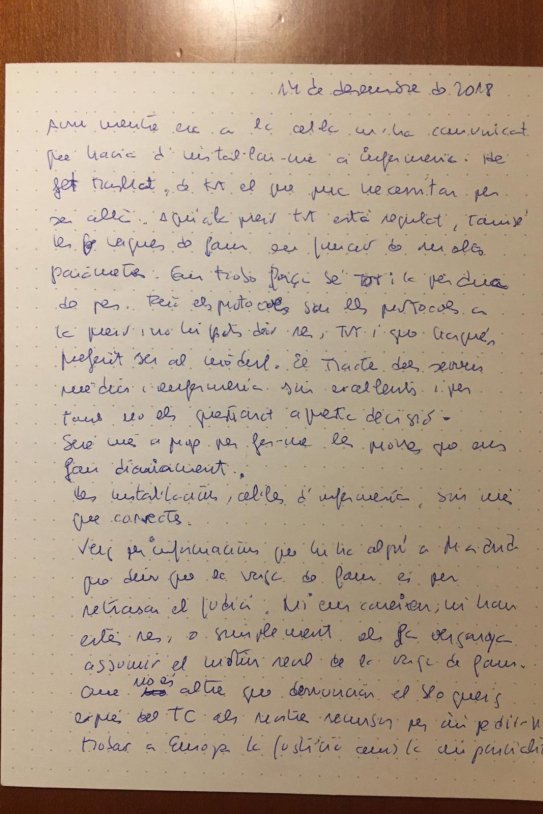 14 de desembre de 2018
Avui mentre era a la cel·la m'ha comunicat
que havia d'instal·lar-me a infermeria. He
fet trasllat, de tot el que puc necessitar per
ser allà. Aquí a la presó tot està regulat, també
les vagues de fam, en funció de molts
paràmetres. Em trobo força bé tot i la pèrdua
de pes. Però els protocols són els protocols a
la presó i no hi pots dir res, tot i que hagués
preferit ser al mòdul. El tracte dels serveis
mèdics i infermeria són excel·lents i per
tant no els qüestionaré aquesta decisió.
Seré més a prop per fer-me les proves que ens
fan diàriament.
Les instal·lacions, cel·les d'infermeria, són més
que correctes.
Veig per informacions que hi ha algú a Madrid
que diu que la vaga de fam és per
retrassar el judici. Ni ens coneixen, ni han
entès res, o simplement els fa vergonya
assumir el motiu real de la vaga de fam.
Que no és altre que denunciar el bloqueig
exprés del TC als nostre recursos per impedir-n
trobar a Europa la justícia amb la imparcialit